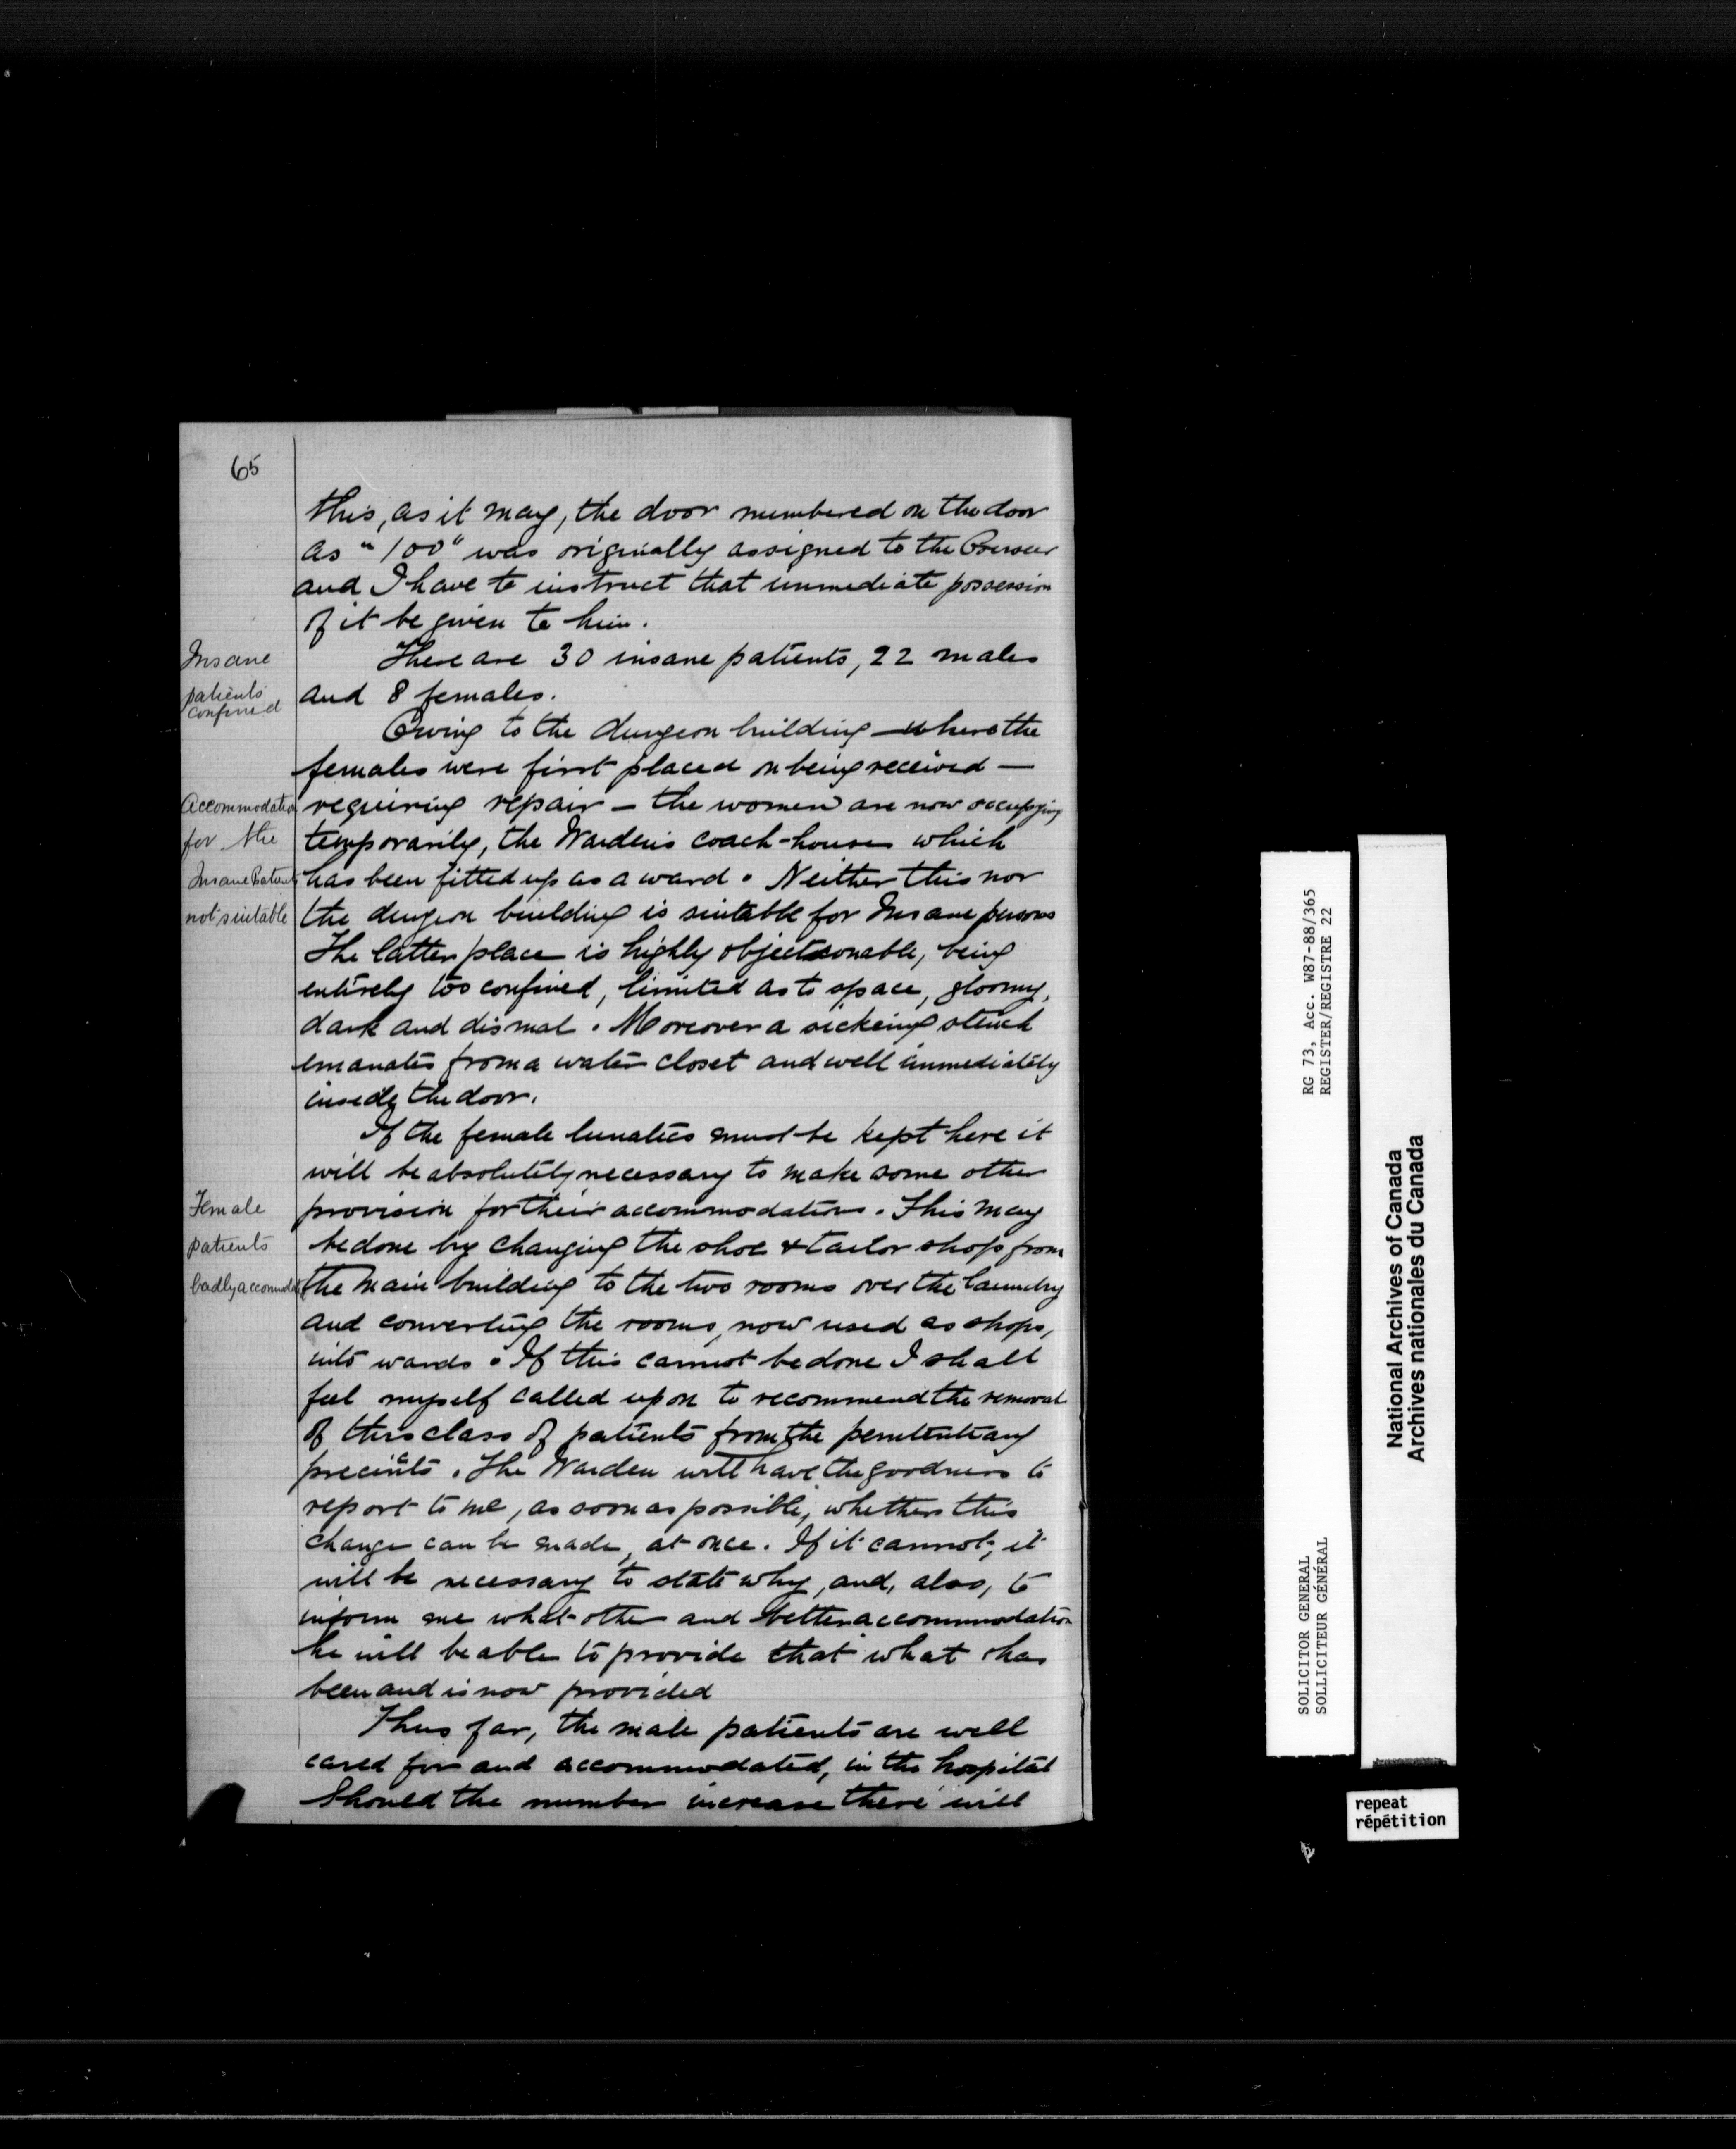 65
this, as it may, the door numbered on the door
as "100" was originally assigned to the Overseer
and I have to instruct that immediate possession
of it be given to him.
Insane
patients
confined
There are 30 insane patients, 22 males
and 8 females.
Owing to the dungeon building — where the
females were first placed on being received —
Accommodation
for the
Insane Patients
not suitable
requiring repair — the women are now occupying
temporarily, the Warden's coach-house which
has been fitted up as a ward. Neither this nor
the dungeon building is suitable for Insane persons
The latter place is highly objectionable, being
entirely too confined, limited as to space, gloomy,
dark and dismal. Moreover a sickening stench
emanates from a water closet and well immediately
inside the door.
If the female lunatics must be kept here it
will be absolutely necessary to make some other
Female
patients
badly accommodated
provision for their accommodation. This may
be done by changing the shoe & tailor shops from
the main building to the two rooms over the laundry
and converting the rooms, now used as shops,
into wards. If this cannot be done I shall
feel myself called upon to recommend the removal
of this class of patients from the penitentiary
precincts. The Warden will have the goodness to
report to me, as soon as possible, whether this
change can be made, at once. If it cannot, it
will be necessary to state why, and, also, to
inform me what other and better accommodation
he will be able to provide that what has
been and is now provided
Thus far, the male patients are well
cared for and accommodated, in the hospital
Should the number increase there will
RG 73, Acc. W87-88/365
REGISTER/REGISTRE 22
SOLICITOR GENERAL
SOLLICITEUR GÉNÉRAL
National Archives of Canada
Archives nationales du Canada
repeat
répétition